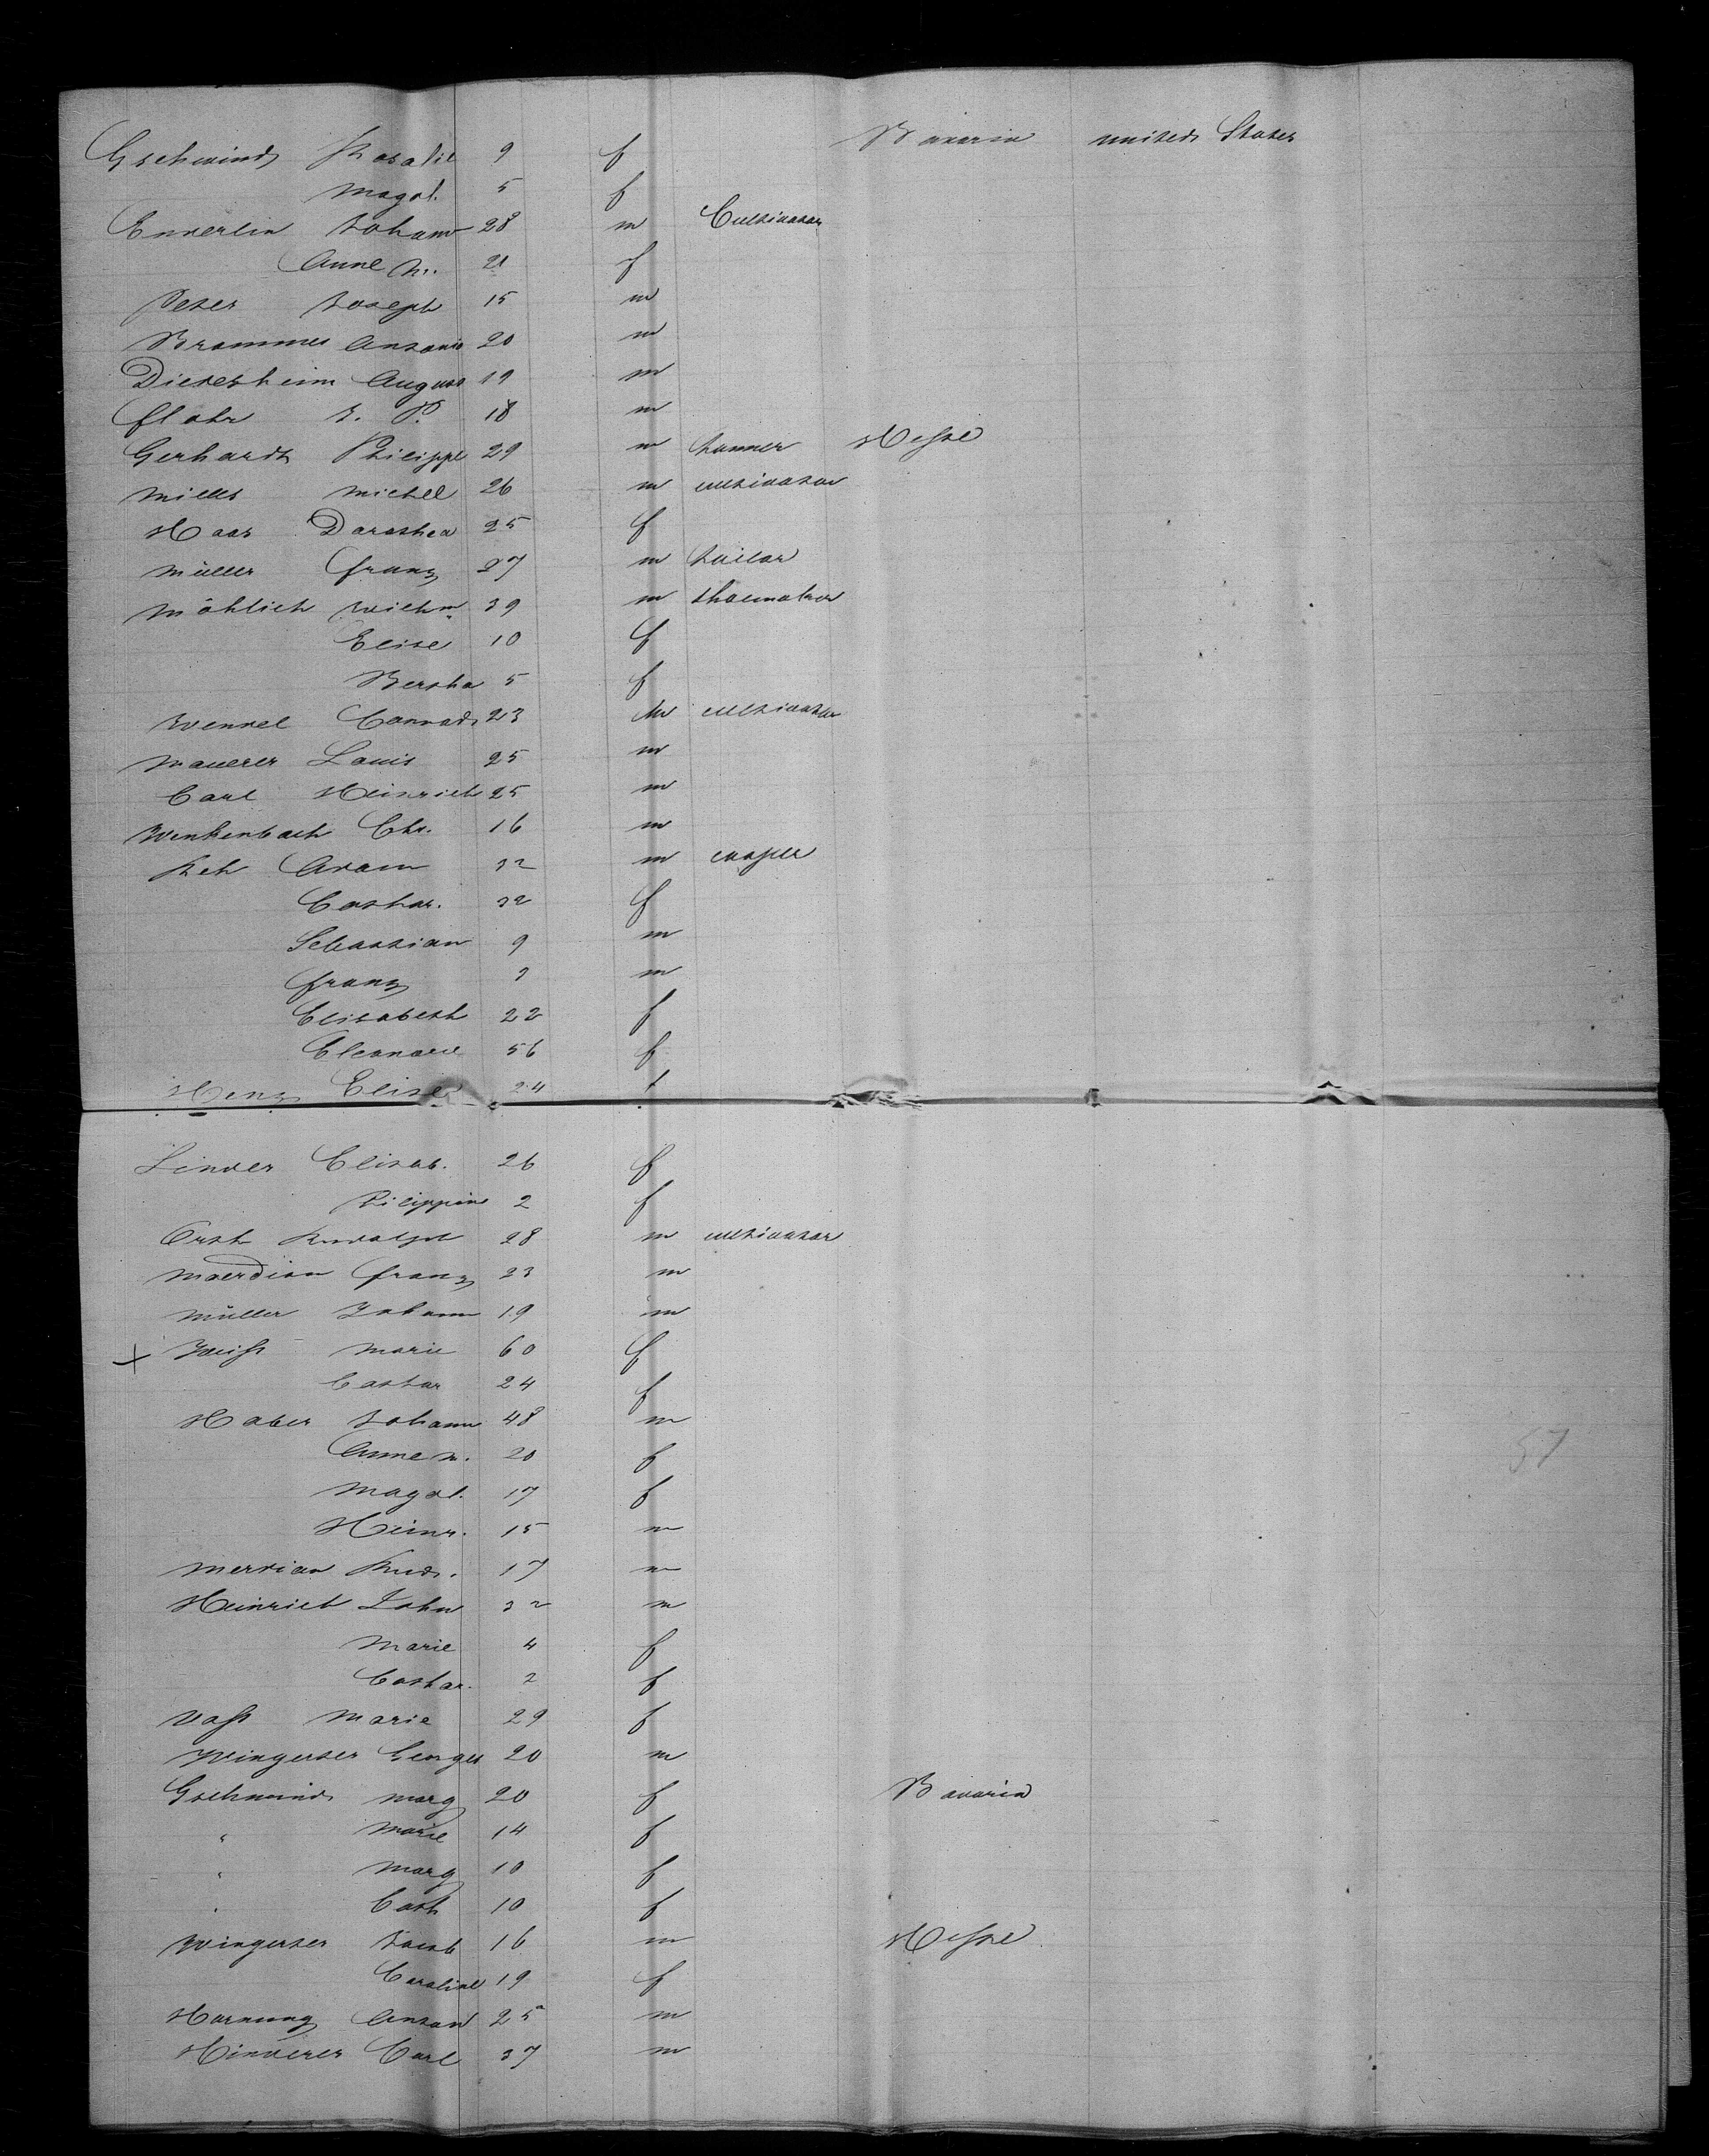 Gschwind Rosalie 9 f Bavaria united States
Magd. 5 f
Enderlin Johann 28 m Cultivator
Anne M. 21 f
Peter Joseph 15 m
Brommer Antoine 20 m
Diedesheim August 19 m
flohr J. P. 18 m
Gerhardt Philippe 29 m tanner Hesse
Miller Michel 26 m cultivator
Haas Dorothea 25 f
Müller franz 27 m tailor
Möhlich Wilhm 39 m shoemaker
Elise 10 f
Bertha 5 f
Wendel Conrad 23 M cultivator
Mauerer Louis 25 m
Carl Heinrich 25 m
Winkenbach Chr. 16 m
Reh Adam 32 m cooper
Cathar. 32 f
Sebastian 9 m
franz 3 m
Elisabeth 22 f
Eleonore 56 f
Henz Elise 24 f
Linder Elisab. 26 f
Philippine 2 f
Orth Rudolph 28 m cultivator
Maerdian franz 23 m
Müller Johann 19 m
x Weiss Marie 60 f
Cathar 24 f
Haber Johann 48 m
Anne M. 20 f
Magd. 17 f
Heinr. 15 m
Merdian Rud. 17 m
Heinrich John 32 m
Marie 4 f
Cathar. 2 f
Voss Marie 29 f
Wingerter Georges 20 m
Gschwind Marg 20 f Bavaria
" Marie 14 f
" Marg 10 f
" Cath 10 f
Wingerter Jacob 16 m Hesse
Caroline 19 f
Hornung Anton 25 m
Hinderer Carl 37 m
57